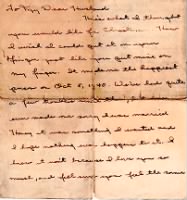 To My Dear Husband
This what I thought
you would like for Christ... How
I wish I could put it on your
finger just like you put mine on
my finger. It makes the happiest
years on Oct 5, 1940. We've had quite
a few
ever made me sorry I was married
Honey it was something I wanted and
I hope nothing ever happens to it. I
know it will because I love you so
much, and feel sure you feel the same